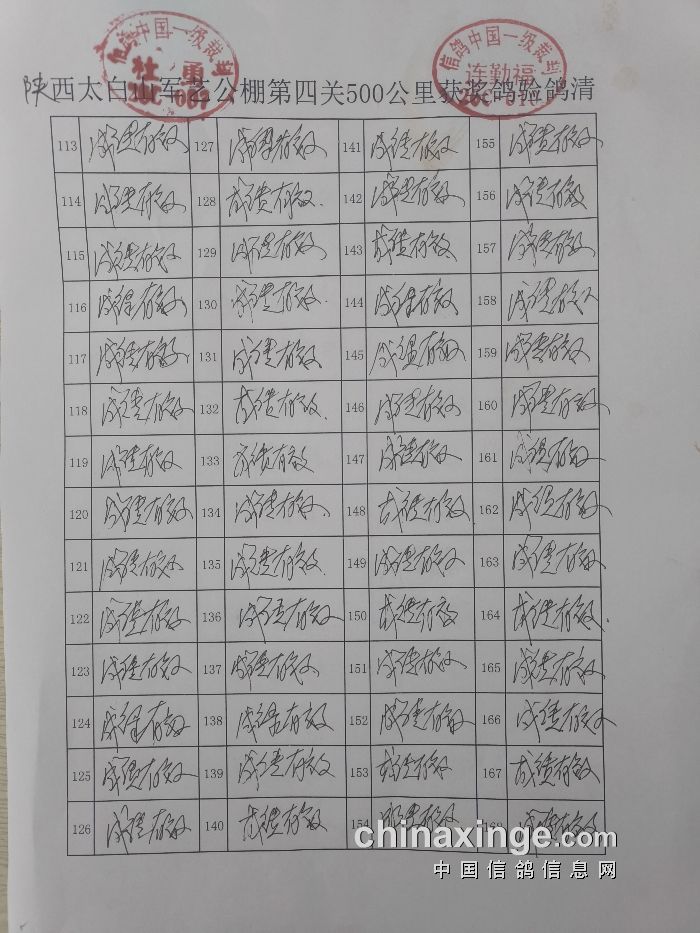 信鸽中国一级裁判
杜勇
信鸽中国一级裁判
连勤福
陕西太白山军艺公棚第四关500公里获奖鸽验鸽清
113 成绩有效 127 成绩有效 141 成绩有效 155 成绩有效
114 成绩有效 128 成绩有效. 142 成绩有效 156 成绩有效
115 成绩有效 129 成绩有效 143 成绩有效 157 成绩有效
116 成绩有效 130 成绩有效. 144 成绩有效 158 成绩有效
117 成绩有效 131 成绩有效 145 成绩有效 159 成绩有效
118 成绩有效 132 成绩有效. 146 成绩有效 160 成绩有效
119 成绩有效 133 成绩有效 147 成绩有效 161 成绩有效
120 成绩有效 134 成绩有效. 148 成绩有效 162 成绩有效
121 成绩有效 135 成绩有效. 149 成绩有效 163 成绩有效
122 成绩有效 136 成绩有效 150 成绩有效 164 成绩有效.
123 成绩有效 137 成绩有效 151 成绩有效 165 成绩有效
124 成绩有效 138 成绩有效 152 成绩有效 166 成绩有效
125 成绩有效 139 成绩有效 153 成绩有效 167 成绩有效
126 成绩有效 140 成绩有效 154 成绩有效 168 成绩有效
chinaxinge.com
中国信鸽信息网